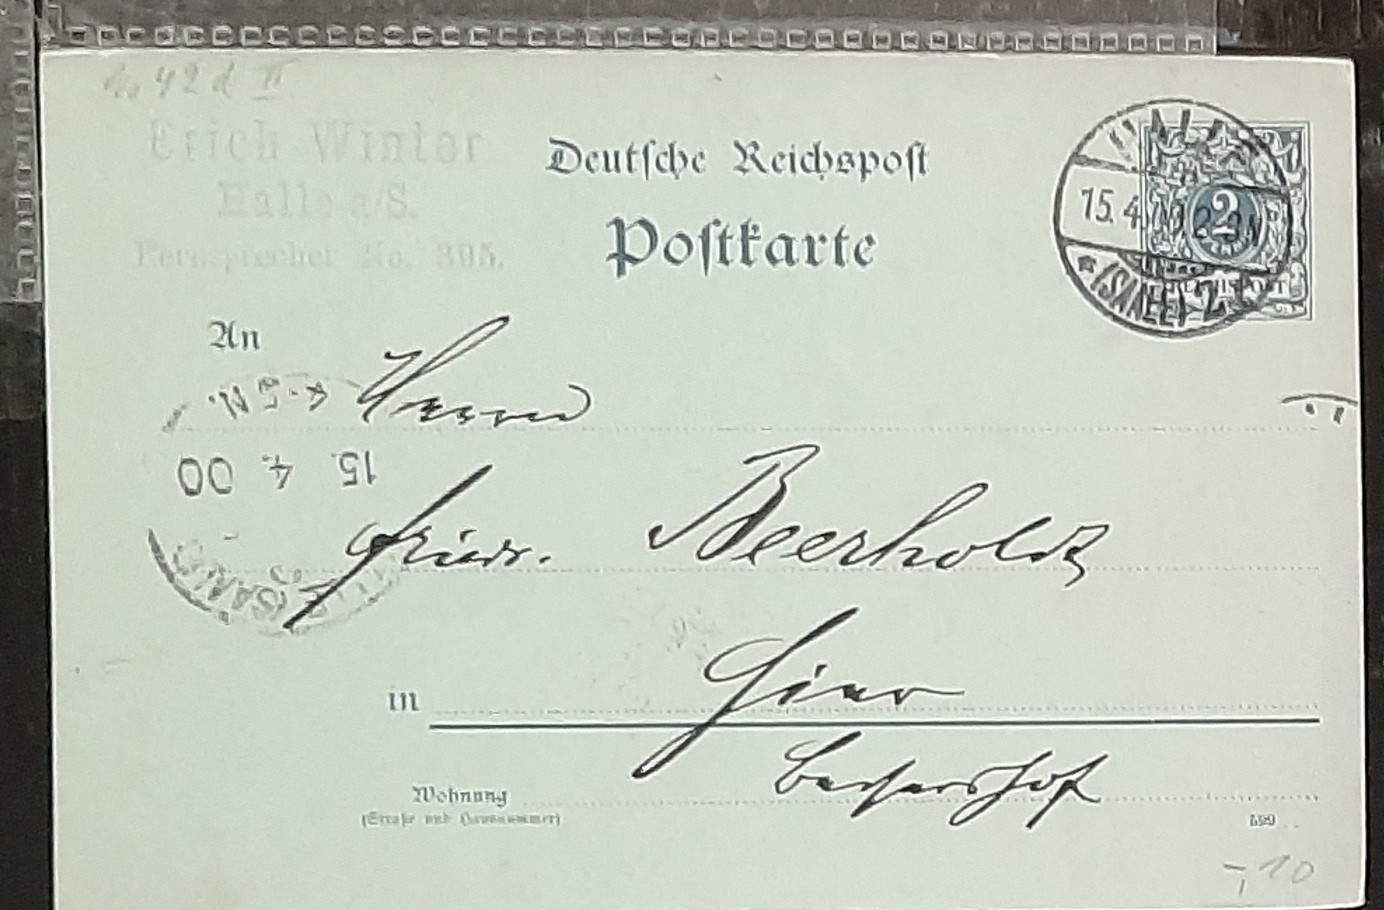 42d II
Erich Winter
Halle a/S.
Fernsprecher No. 395.
Deutsche Reichspost
Postkarte
HALLE
15.4.00 2-3N
* (SAALE) 2
2
REICHSPOST
An
4-5 N.
15. 4. 00
Herrn
Friedr. Beerholdt
in Hier
Wohnung
(Straße und Hausnummer)
-,10